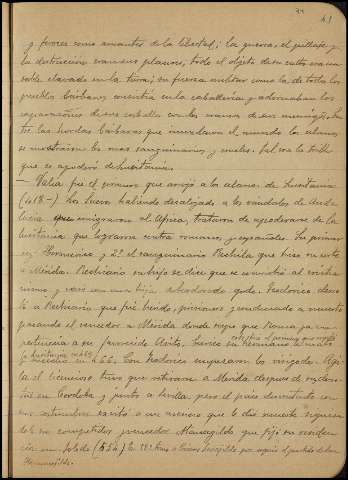 41
y feroces como amantes de la libertad; la guerra, el pillage y
la destruccion eran sus placeres, todo el objeto de su culto era un
sable clavado en la tierra; su fuerza militar como la de todos los
pueblos bárbaros consistia en la caballeria y adornaban los
caparazones de sus caballos con los craneos de sus enemigos. En-
tre las hordas bárbaras que inundaron el mundo los alanos
se mostraron los mas sanguinarios y crueles. Tal era la tribu
que se apoderó de Lusitania.
— Valia fué el que arrojó a los alanos de Lusitania
(418-) Los Suevos habiendo desalojado a los vándalos de Anda
lucia que emigraron al Africa, trataron de apoderarse de la
Lusitania que lograron contra romanos y españoles. Su primer
rey Hermerico y 2º el sanguinario Rechila que hizo su corte
a Mérida. Rechiario su hijo se dice que se convirtió al cristia
nismo, y casó con una hija de Teodoredo godo. Teodorico derro
tó a Rechiario que fué herido, prisionero y condenado a muerte
pasando el vencedor a Mérida donde supo que Roma ya no
pertenecia a su favorecido Avito,
en 466. Con Teodorico empezaron los visigodos. Agi
la el licencioso tuvo que retirarse a Mérida despues de
en Cordoba y junto a Sevilla, pero el pais disgustado con
sus costumbres escitó a un que le dió muerte
de su competidor y vencedor Atanagildo que fijó su residen
cia en Toledo (554)
Hermenegildo.